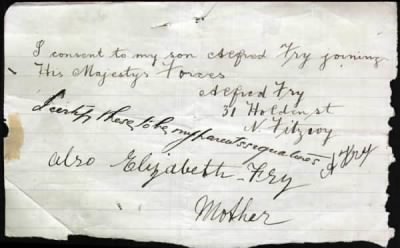 I consent to my son Alfred Fry joining
His Majestys Forces
Alfred Fry
31 Holden st
N Fitzroy
I certify these to be my parents signatures A Fry
also Elizabeth Fry
Mother